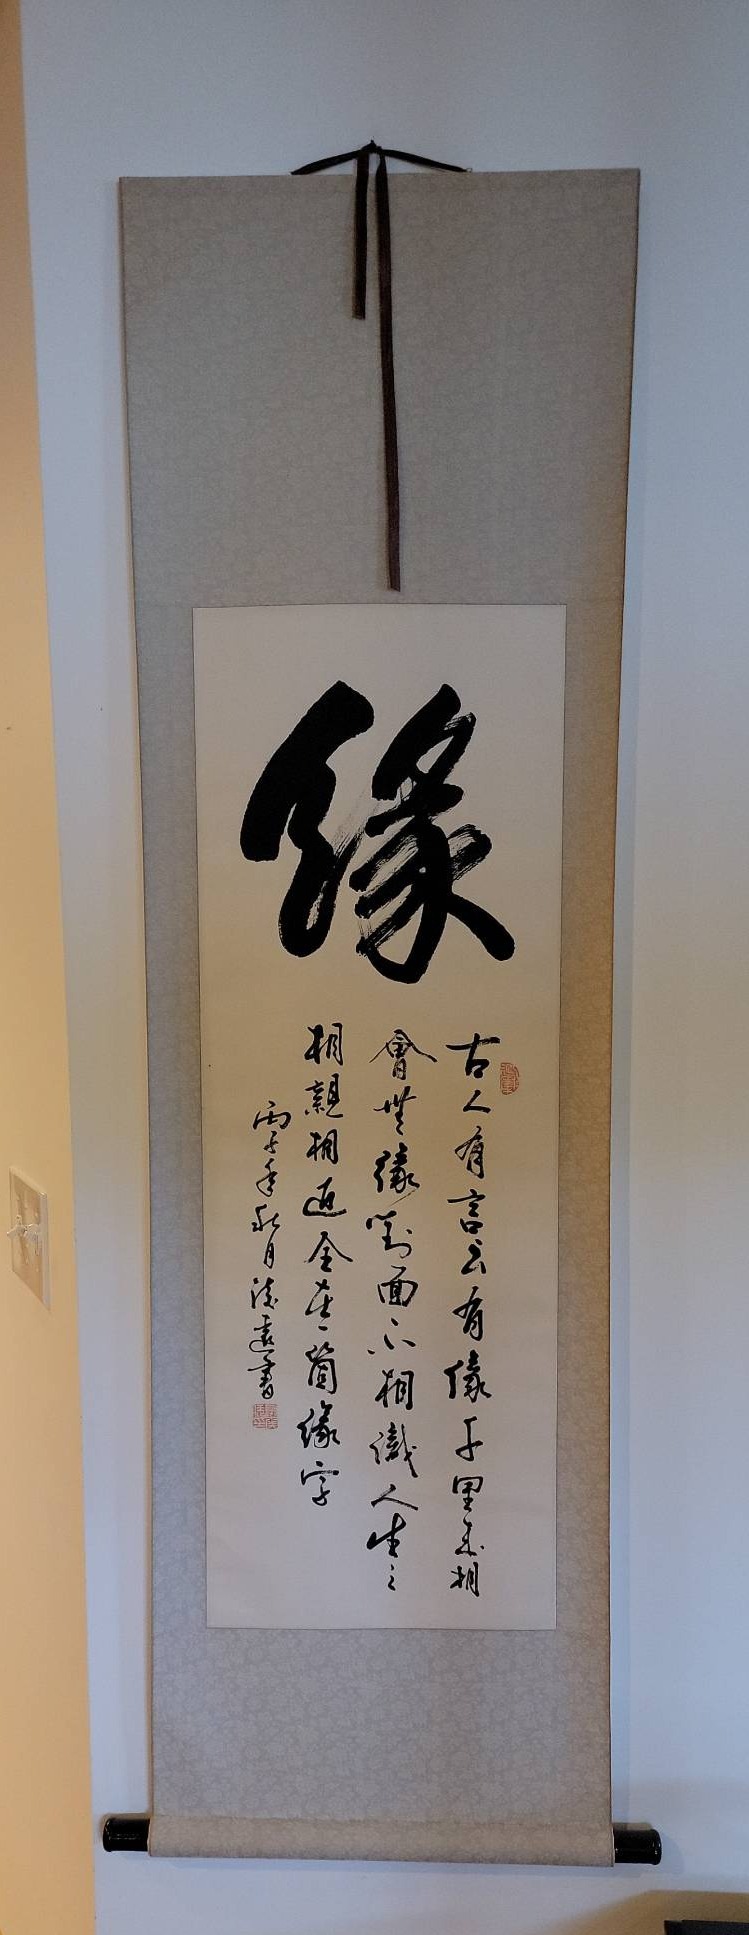 緣
古人有言云有緣千里來相
會無緣對面不相識人生之
相親相近全在一箇緣字
丙子年秋月德遠書